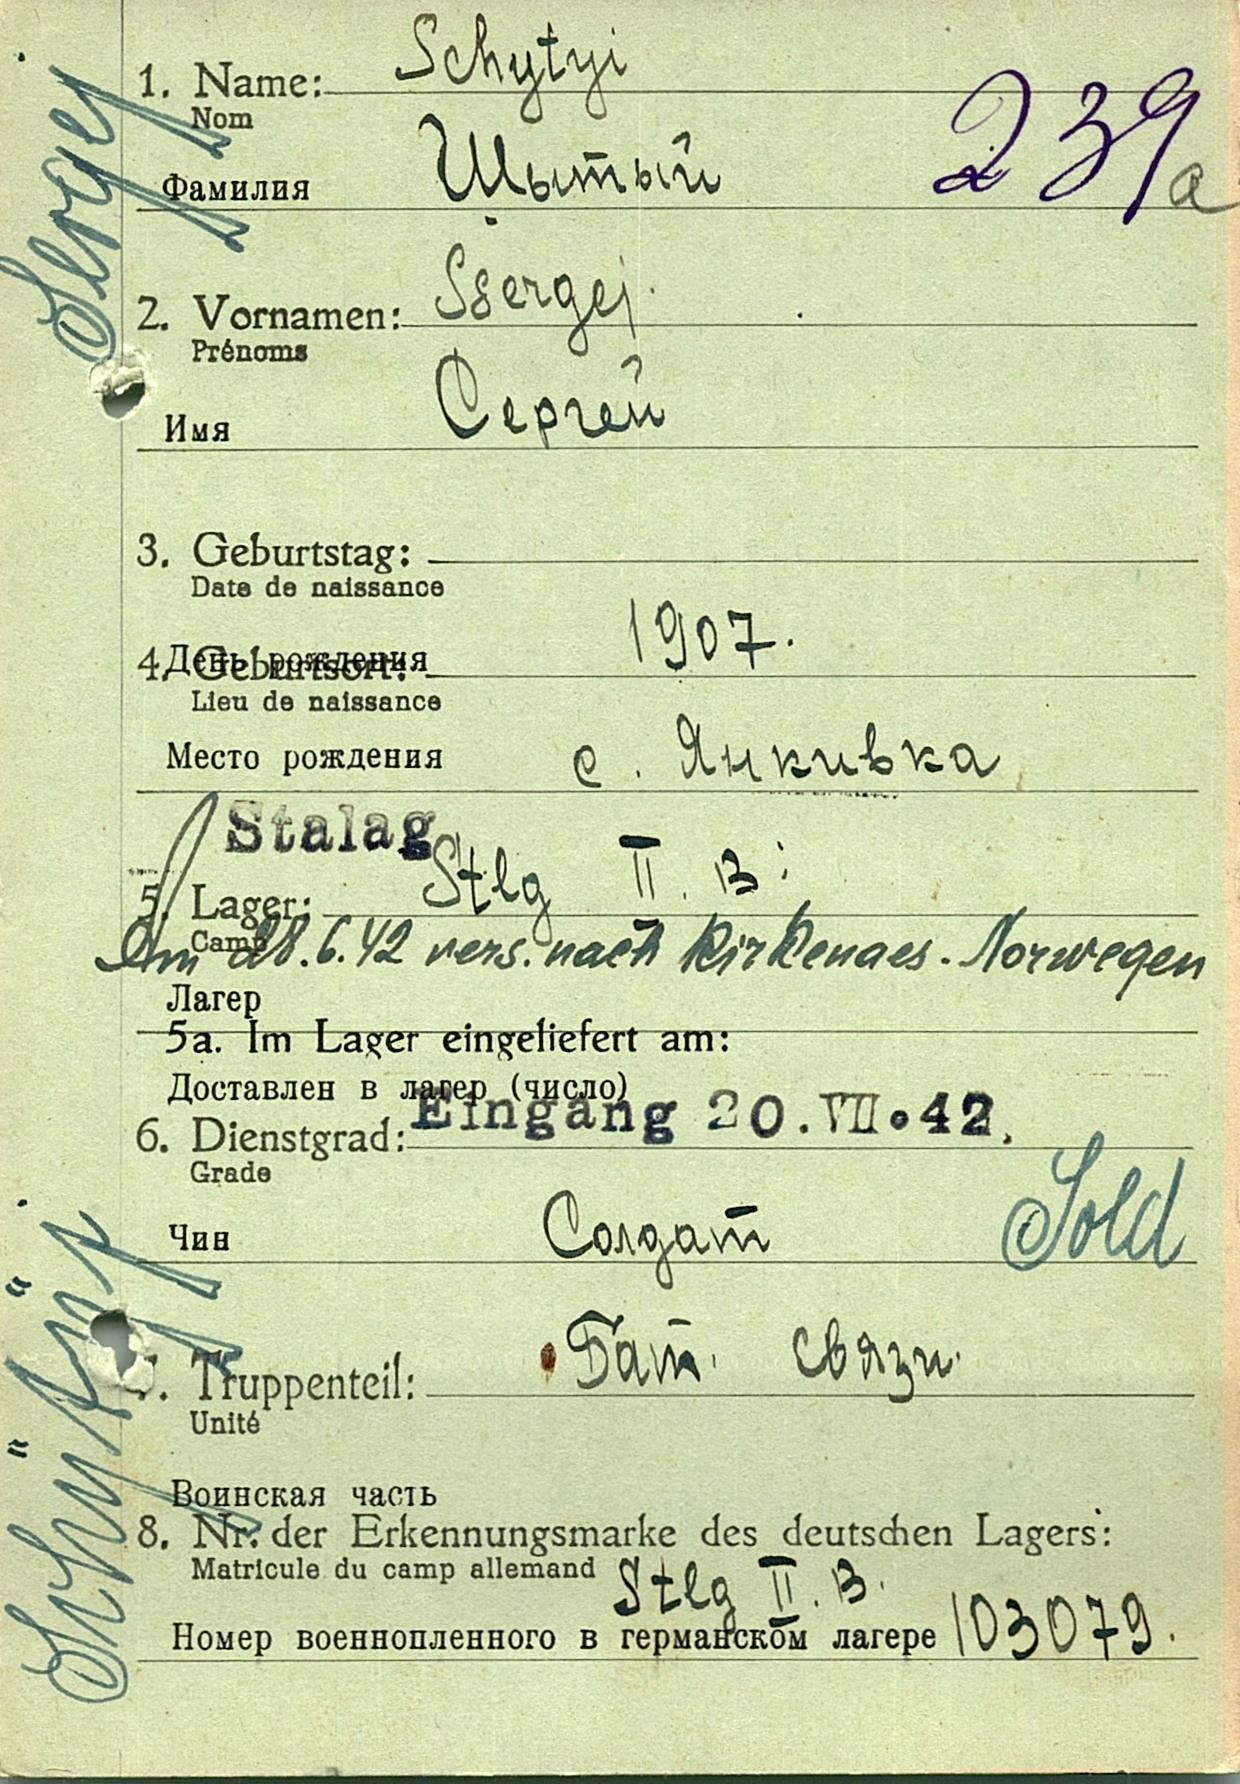 1. Name: Schytyi
Nom
Фамилия Шытый
239a
2. Vornamen: Ssergej.
Prénoms
Имя Сергей
3. Geburtstag:
Date de naissance
День рождения 1907.
4. Geburtsort:
Lieu de naissance
Место рождения с. Янкивка
Stalag
5. Lager: Stlg II. B.
Camp
Am 28.6.42 vers. nach Kirkenaes. Norwegen
Лагер
5a. Im Lager eingeliefert am:
Доставлен в лагер (число)
Eingang 20.VII.42.
6. Dienstgrad:
Grade
Чин Солдат Sold
7. Truppenteil: Бат. связи.
Unité
Воинская часть
8. Nr. der Erkennungsmarke des deutschen Lagers:
Matricule du camp allemand Stlg II. B.
Номер военнопленного в германском лагере 103079.
Sergej